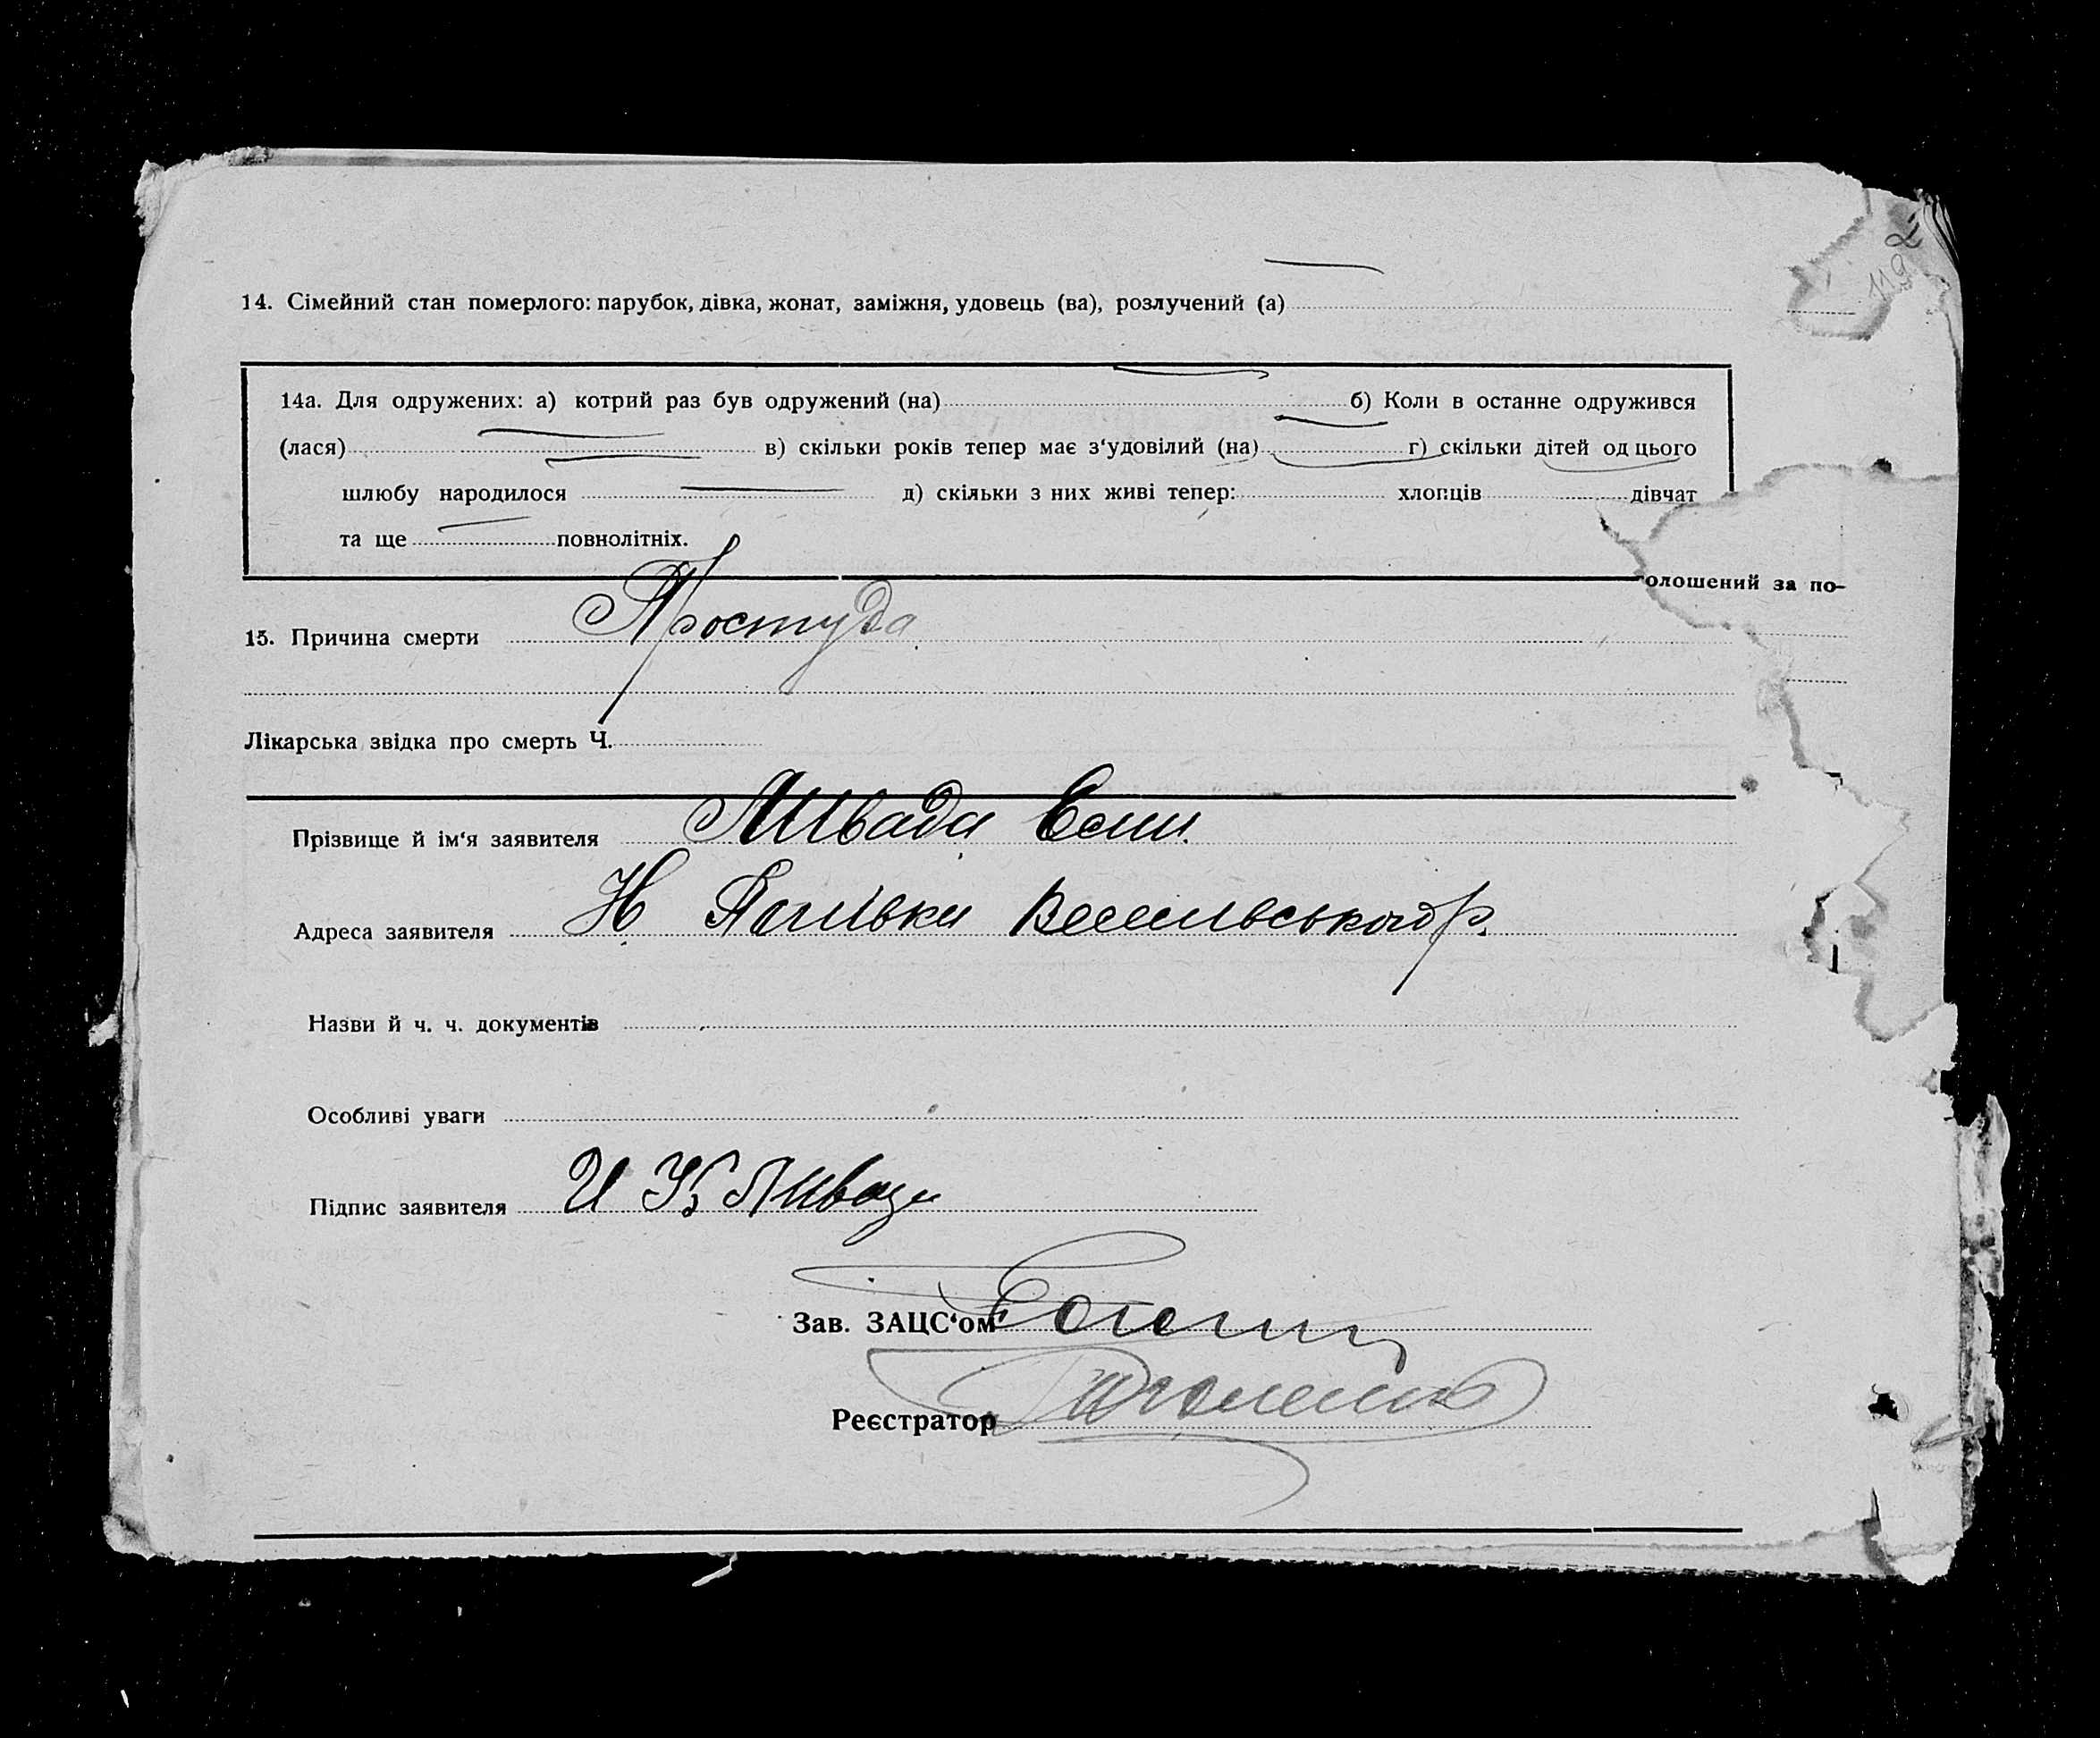 2
119
14. Сімейний стан померлого: парубок, дівка, жонат, заміжня, удовець (ва), розлучений (а)
14а. Для одружених: а) котрий раз був одружений (на) б) Коли в останне одружився
(лася) в) скільки років тепер має з‘удовілий (на) г) скільки дітей од цього
шлюбу народилося д) скільки з них живі тепер: хлопців дівчат
та ще повнолітніх.
олошений за по-
15. Причина смерти Простуда
Лікарська звідка про смерть Ч.
Прізвище й ім‘я заявителя
Адреса заявителя Н
Назви й ч. ч. документів
Особливі уваги
Підпис заявителя И К
Зав. ЗАЦС‘ом
Реєстратор